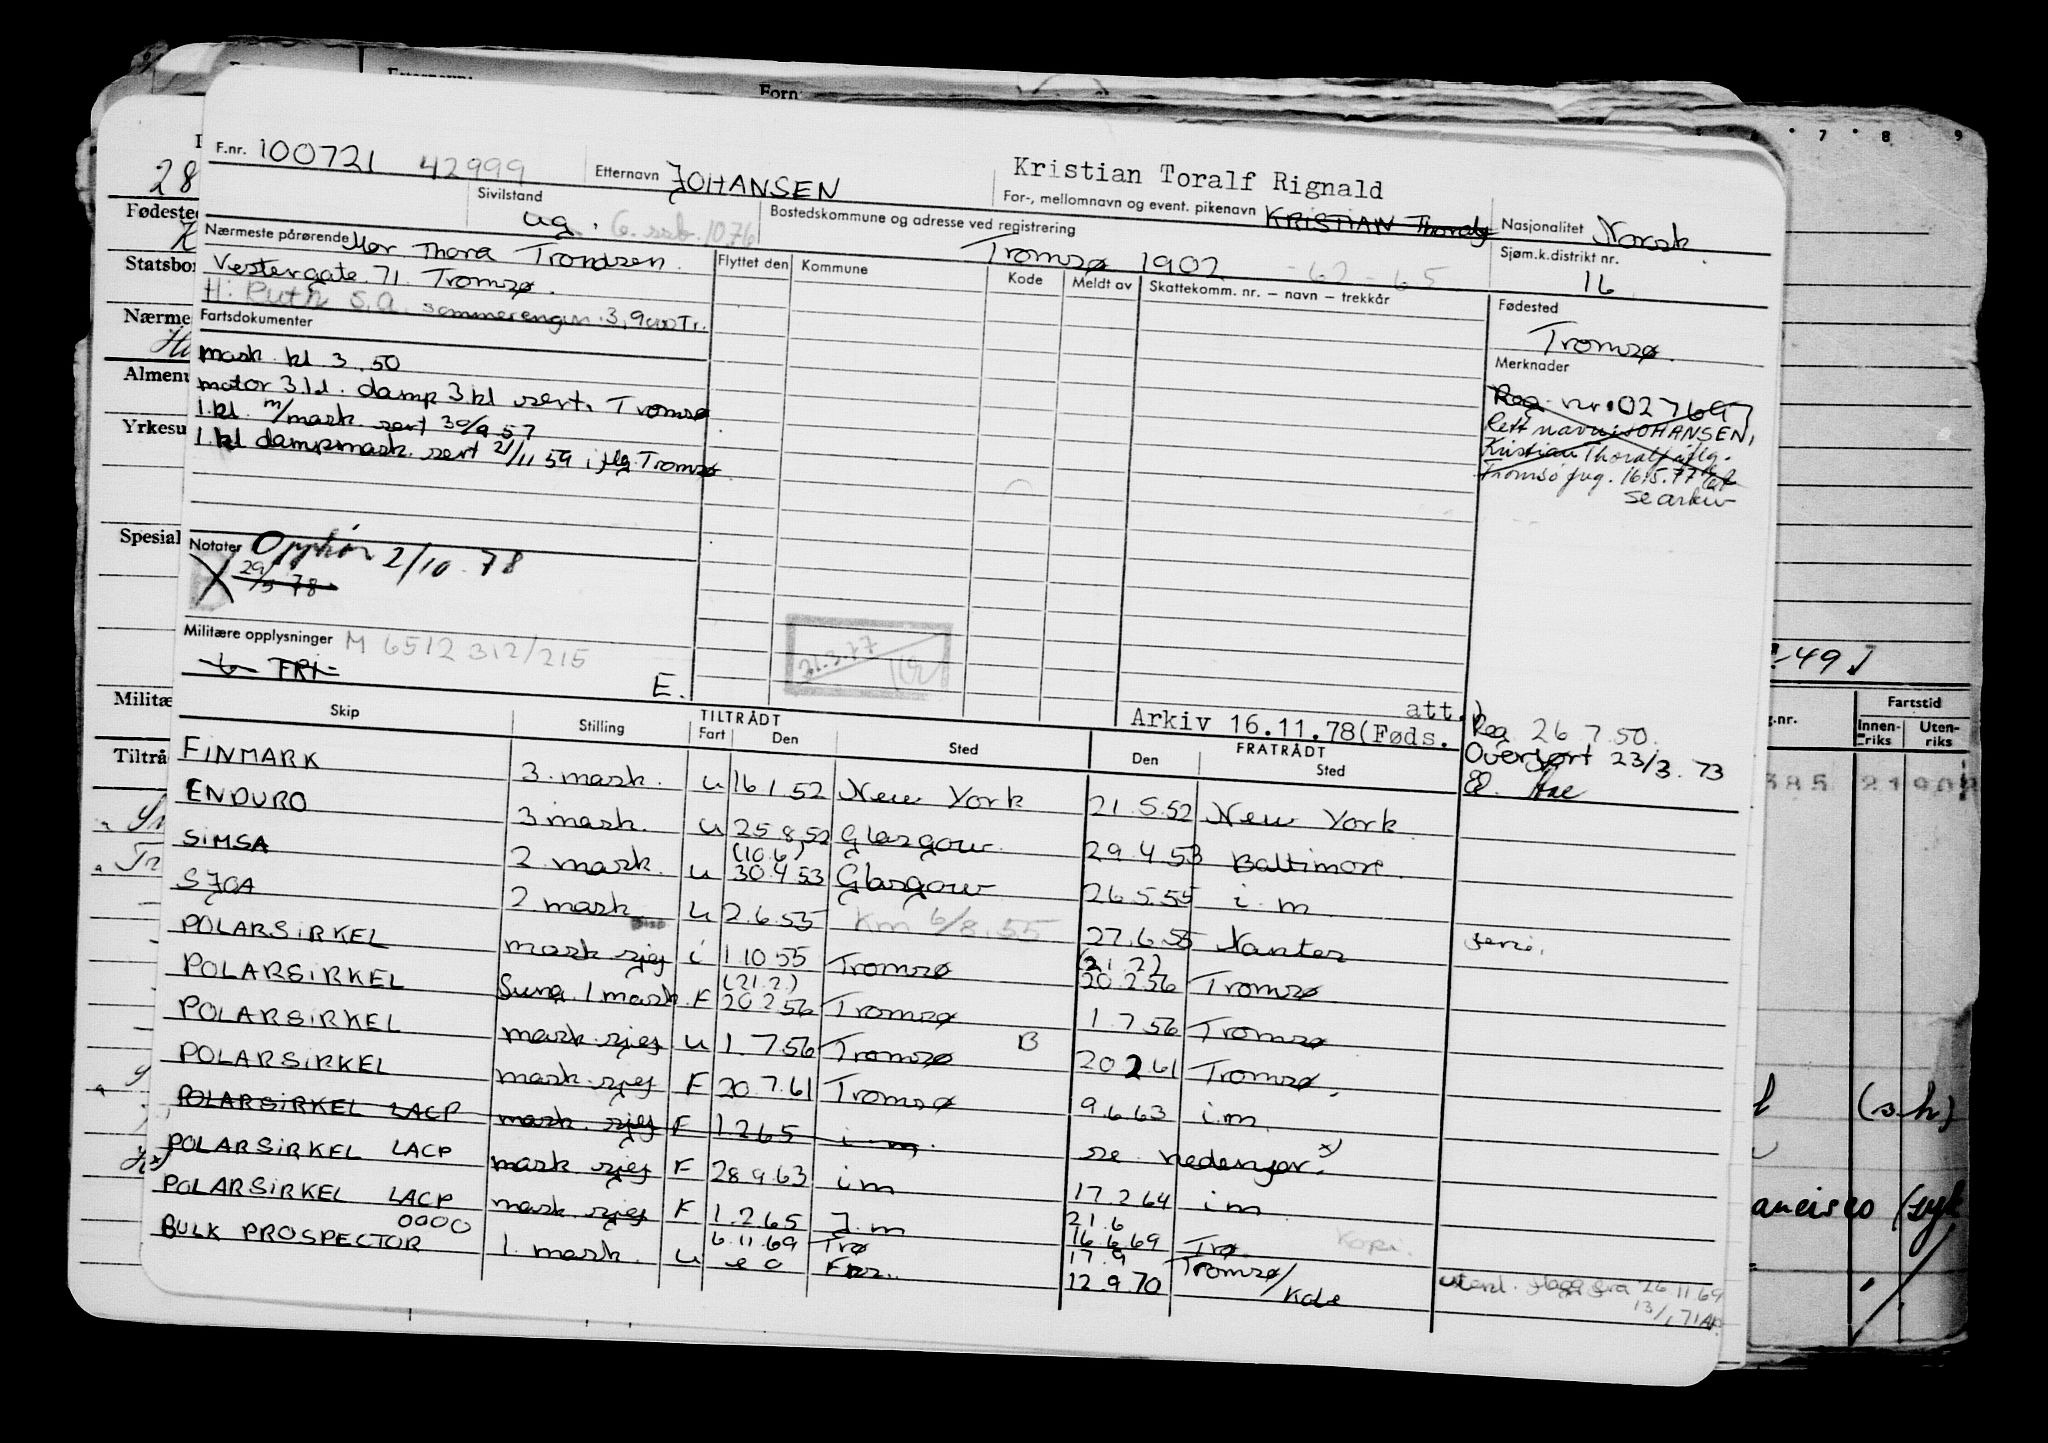 F.nr. 100721 42999 Etternavn JOHANSEN Kristian Toralf Rignald
For-, mellomnavn og event. pikenavn KRISTIAN Thoralf Nasjonalitet Norsk
Sivilstand ug.
Bostedskommune og adresse ved registrering Tromsø 1902 -62-65 Sjøm.k.distrikt nr. 16
Nærmeste pårørende Mor Thora Trondsen
Vestergate. 71. Tromsø.
H: Ruth s.a. sommerengen. 3, 9000 Tr.
Flyttet den Kommune Kode Meldt av Skattekomm. nr. – navn – trekkår
Fødested
Tromsø.
Fartsdokumenter
mask. kl 3. 50
motor 3 kl. damp 3 kl sert. Tromsø
1. kl. m/mask. sert 30/9 57
1. kl dampmask. sert 21/11 59 i flg Tromsø
Merknader
Reg nr. 027697
Rett navn: JOHANSEN,
Kristian Thoralf iflg.
Tromsø fvg. 16.5.77
se arkiv
Notater Opphør 2/10.78
X 29/5 78
Militære opplysninger M 6512 312/215
FRI
E.
21.3.77
Arkiv 16.11.78(Føds. att.)
Reg. 26.7.50.
Overført 23/3.73
Skip Stilling TILTRÅDT FRATRÅDT
Fart Den Sted Den Sted
FINMARK 3. mask. u 16.1.52 New York 21.5.52 New York
ENDURO 3 mask. u 25.8.52 Glasgow 29.4.53 Baltimore.
SIMSA 2. mask. u (10.6) 30.4.53 Glasgow 26.5.55 i.m.
SJOA 2 mask u 2.6.55 Km 6/8.55 27.6.55 Nantes ferie.
POLARSIRKEL mask sjef i 1.10.55 Tromsø (21.2) 20.2.56 Tromsø
POLARSIRKEL 1 mask. F (21.2) 20.2.56 Tromsø 1.7.56 Tromsø
POLARSIRKEL mask.sjef u 1.7.56 Tromsø B 20.2.61 Tromsø.
POLARSIRKEL mask.sjef F 20.7.61 Tromsø 9.6.63 i.m.
POLARSIRKEL LACP mask. sjef F 1.2.65 i m. se nedenfor. x)
POLARSIRKEL LACP mask sjef F 28.9.63 i m 17.2.64 i m
POLARSIRKEL LACP mask. sjef F 1.2.65 I. m 21.6 16.6.69 Trø. Kopi.
BULK PROSPECTOR OOOO 1. mask. u 6.11.69 Trø 17.9 12.9.70 Tromsø/
utenl. flagg fra 26 11 69
13/1 71
Etternavn:
Forn
28
Fødested
Statsbor
Nærme
Almenu
Yrkesu
Spesial
Militæ
Tiltrå
7 8 9
-49)
g.nr. Fartstid
Innen-riks Uten-riks
(s.h)
ancisco (syk